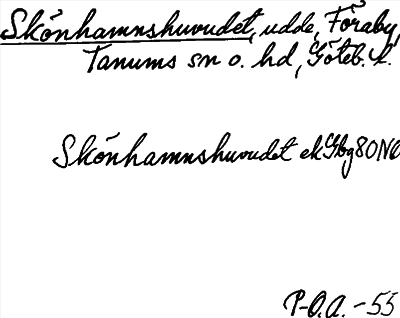 Skönhamnshuvudet, udde, Föraby,
Tanums sn o. hd, Göteb. l.
Skönhamnshuvudet ek Gbg 80 NO
P-O.A. -55